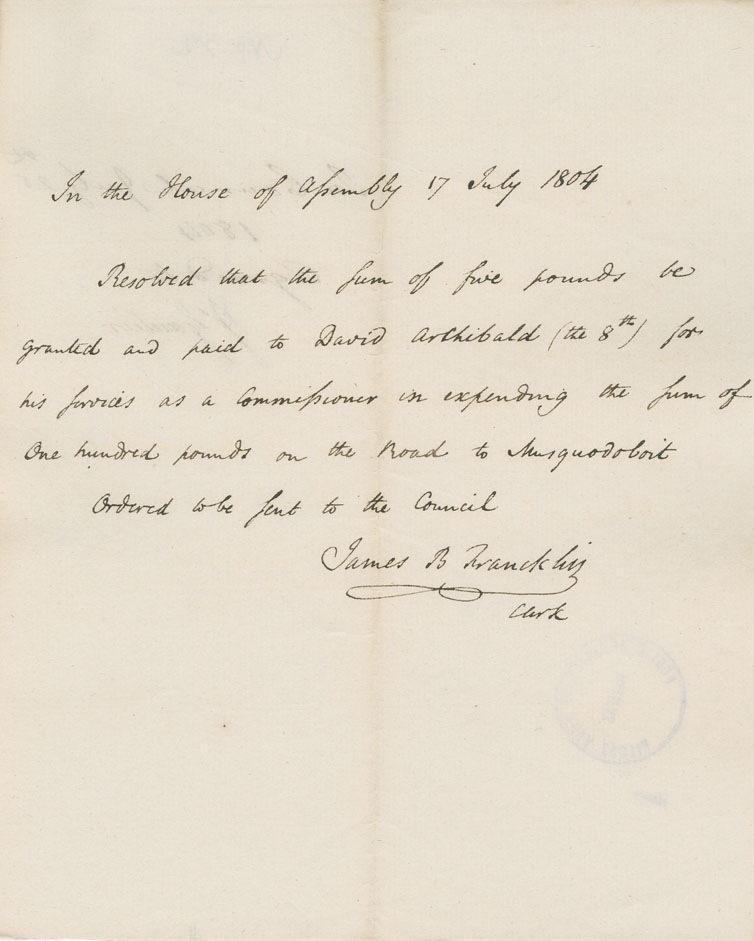 In the House of Assembly 17 July 1804
Resolved that the sum of five pounds be
granted and paid to David Archibald (the 8th) for
his services as a Commissioner in expending the sum of
One hundred pounds on the Road to Musquodoboit
Ordered to be sent to the Council
James B Francklin
Clerk